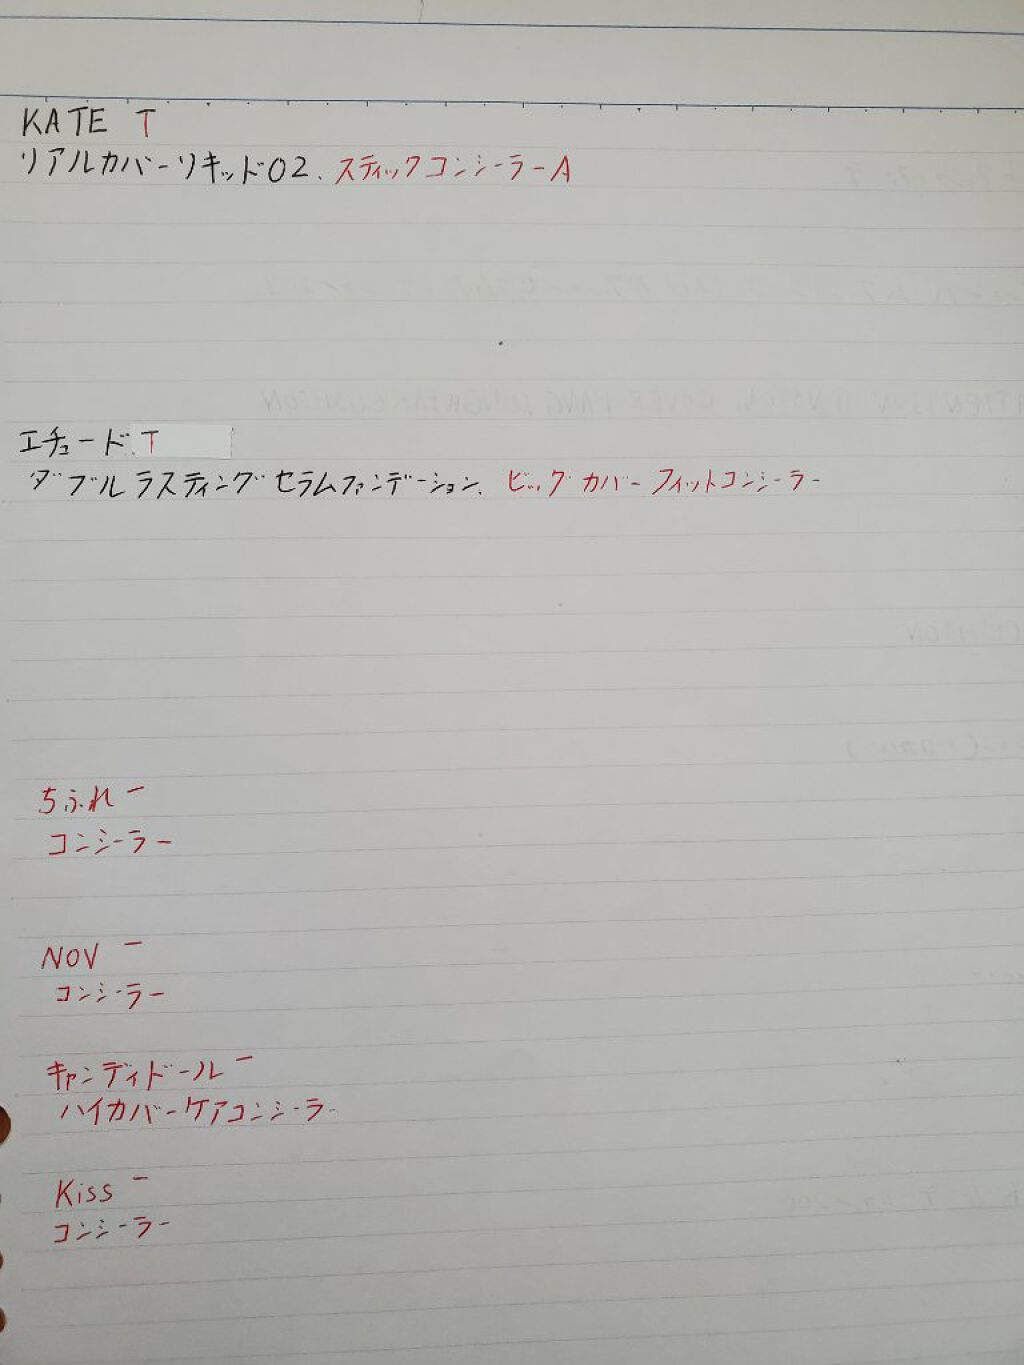 KATE T
リアルカバーリキッド02、スティックコンシーラーA
エチュード T
ダブルラスティングセラムファンデーション、ビッグカバーフィットコンシーラー
ちふれ ー
コンシーラー
NOV ー
コンシーラー
キャンディドール ー
ハイカバーケアコンシーラー
Kiss ー
コンシーラー